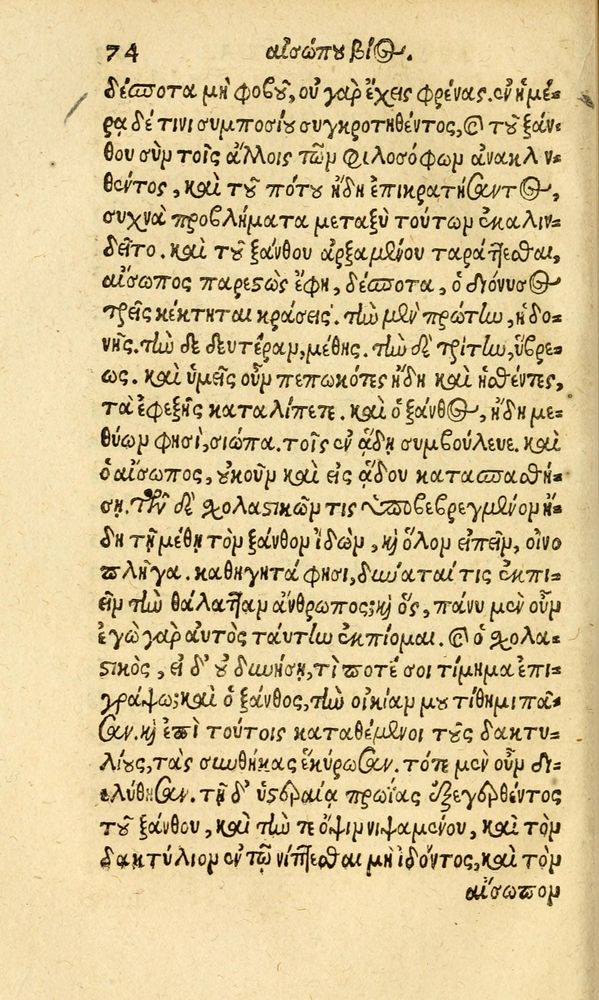 74 αἰσώπου βίος.
δέσποτα μὴ φοβοῦ, οὐ γὰρ ἔχεις φρένας. ἐν ἡμέ-
ρᾳ δέ τινι συμποσίου συγκροτηθέντος, καὶ τοῦ ξάν-
θου σὺν τοῖς ἄλλοις τῶν φιλοσόφων ἀνακλιν-
θέντος, καὶ τοῦ πότου ἤδη ἐπικρατήσαντος,
συχνὰ προβλήματα μεταξὺ τούτων ἐκαλιν-
δεῖτο. καὶ τοῦ ξάνθου ἀρξαμένου ταράττεσθαι,
αἴσωπος παρεστὼς ἔφη, δέσποτα, ὁ διόνυσος
τρεῖς κέκτηται κράσεις. τὴν μὲν πρώτην, ἡδο-
νῆς. τὴν δὲ δευτέραν, μέθης. τὴν δὲ τρίτην, ὕβρε-
ως. καὶ ὑμεῖς οὖν πεπωκότες ἤδη καὶ ἡσθέντες,
τὰ ἐφεξῆς καταλίπετε. καὶ ὁ ξάνθος, ἤδη με-
θύων φησὶ, σιώπα. τοῖς ἐν ᾅδῃ συμβούλευε. καὶ
ὁ αἴσωπος, οὐκοῦν καὶ εἰς ᾅδου κατασπασθή-
σῃ. τῶν δὲ σχολαστικῶν τις ὑποβεβρεγμένον ἤ-
δη τῇ μέθῃ τὸν ξάνθον ἰδὼν, καὶ ὅλον εἰπεῖν, οἰνο
πλῆγα. καθηγητά φησι, δύναταί τις ἐκπι-
εῖν τὴν θάλατταν ἄνθρωπος; καὶ ὃς, πάνυ μὲν οὖν
ἐγὼ γὰρ αὐτὸς ταύτην ἐκπίομαι. καὶ ὁ σχολα-
στικὸς, εἰ δ' οὐ δυνήσῃ, τί ποτέ σοι τίμημα ἐπι-
γράψω; καὶ ὁ ξάνθος, τὴν οἰκίαν μου τίθημι πᾶ-
σαν. καὶ ἐπὶ τούτοις καταθέμενοι τοὺς δακτυ-
λίους, τὰς συνθήκας ἐκύρωσαν. τότε μὲν οὖν δι-
ελύθησαν. τῇ δ' ὑστεραίᾳ πρωίας ἐξεγερθέντος
τοῦ ξάνθου, καὶ τήν τε ὄψιν νιψαμένου, καὶ τὸν
δακτύλιον ἐν τῷ νίπτεσθαι μὴ ἰδόντος, καὶ τὸν
αἴσωπον